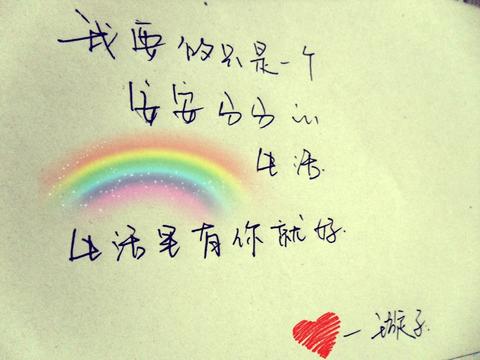 我要的只是一个
安安分分的
生活.
生活里有你就好.
— 子.